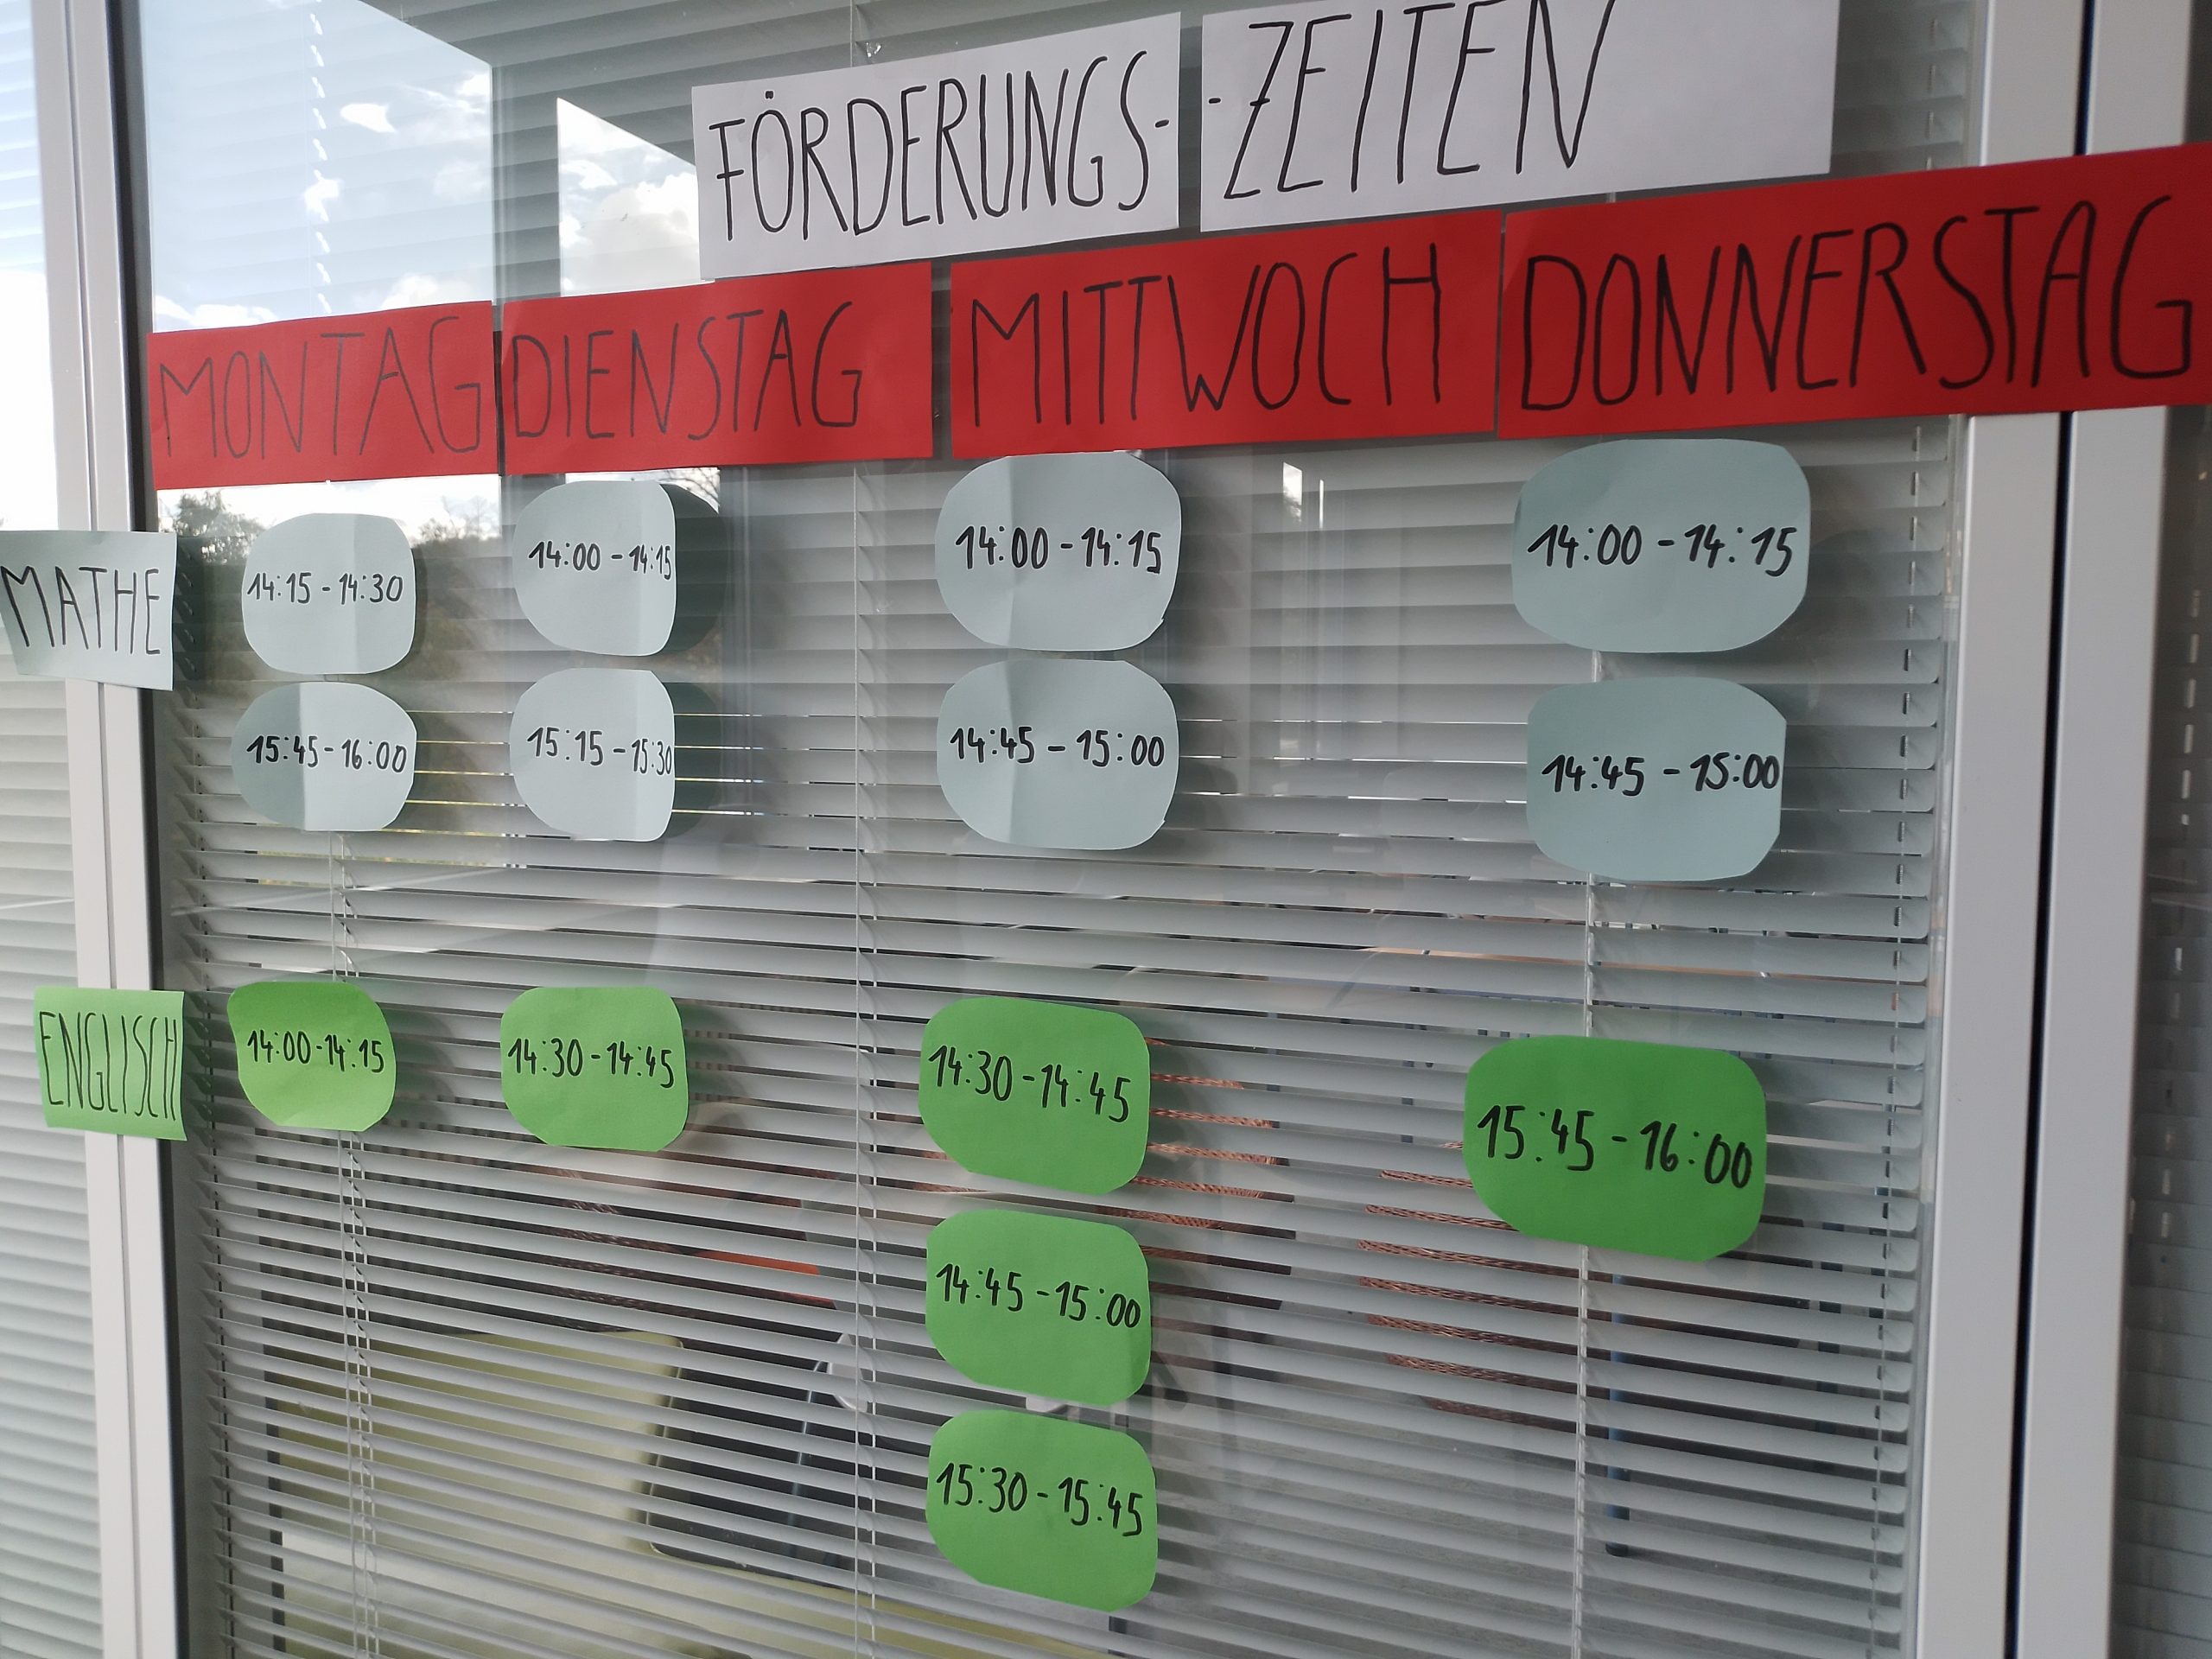 FÖRDERUNGS- -ZEITEN
MONTAG DIENSTAG MITTWOCH DONNERSTAG
MATHE 14:15 - 14:30 14:00 - 14:15 14:00 - 14:15 14:00 - 14:15
15:45 - 16:00 15:15 - 15:30 14:45 - 15:00 14:45 - 15:00
ENGLISCH 14:00 - 14:15 14:30 - 14:45 14:30 - 14:45 15:45 - 16:00
14:45 - 15:00
15:30 - 15:45